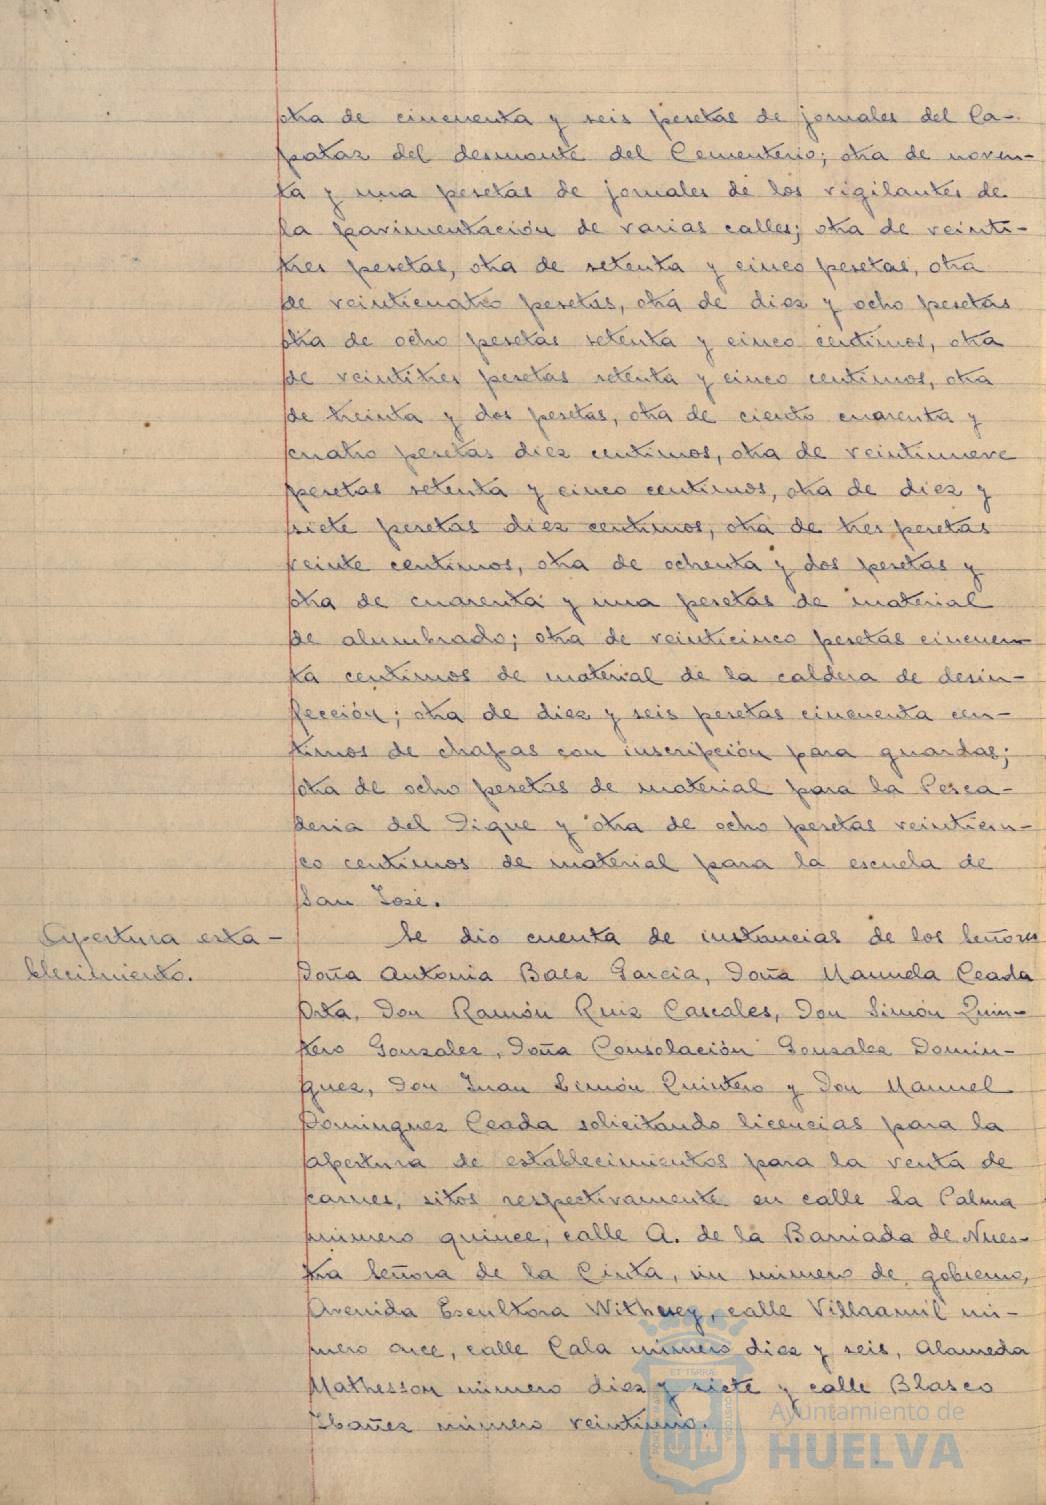 otra de cincuenta y seis pesetas de jornales del Ca-
pataz del desmonte del Cementerio; otra de noven-
ta y una pesetas de jornales de los vigilantes de
la pavimentación de varias calles; otra de veinti-
tres pesetas, otra de setenta y cinco pesetas, otra
de veinticuatro pesetas, otra de diez y ocho pesetas
otra de ocho pesetas setenta y cinco centimos, otra
de veintitres pesetas setenta y cinco centimos, otra
de treinta y dos pesetas, otra de ciento cuarenta y
cuatro pesetas diez centimos, otra de veintinueve
pesetas setenta y cinco centimos, otra de diez y
siete pesetas diez centimos, otra de tres pesetas
veinte centimos, otra de ochenta y dos pesetas y
otra de cuarenta y una pesetas de material
de alumbrado; otra de veinticinco pesetas cincuen-
ta centimos de material de la caldera de desin-
fección; otra de diez y seis pesetas cincuenta cen-
timos de chapas con inscripción para guardas;
otra de ocho pesetas de material para la Pesca-
deria del Dique y otra de ocho pesetas veinticin-
co centimos de material para la escuela de
San José.
Apertura esta-
blecimiento.
Se dio cuenta de instancias de los Señores
Doña Antonia Baez Garcia, Doña Manuela Ceada
Orta, Don Ramón Ruiz Cascales, Don Simón Quin-
tero Gonzalez, Doña Consolación Gonzalez Domin-
guez, Don Juan Simón Quintero y Don Manuel
Dominguez Ceada solicitando licencias para la
apertura de establecimientos para la venta de
carnes, sitos respectivamente en calle La Palma
número quince, calle A. de la Barriada de Nues-
tra Señora de la Cinta, sin número de gobierno,
Avenida Escultora Witherey, calle Villaamil nú-
mero once, calle Cala número diez y seis, Alameda
Mathesson número diez y siete y calle Blasco
Ibañez número veintiuno.
Ayuntamiento de
HUELVA